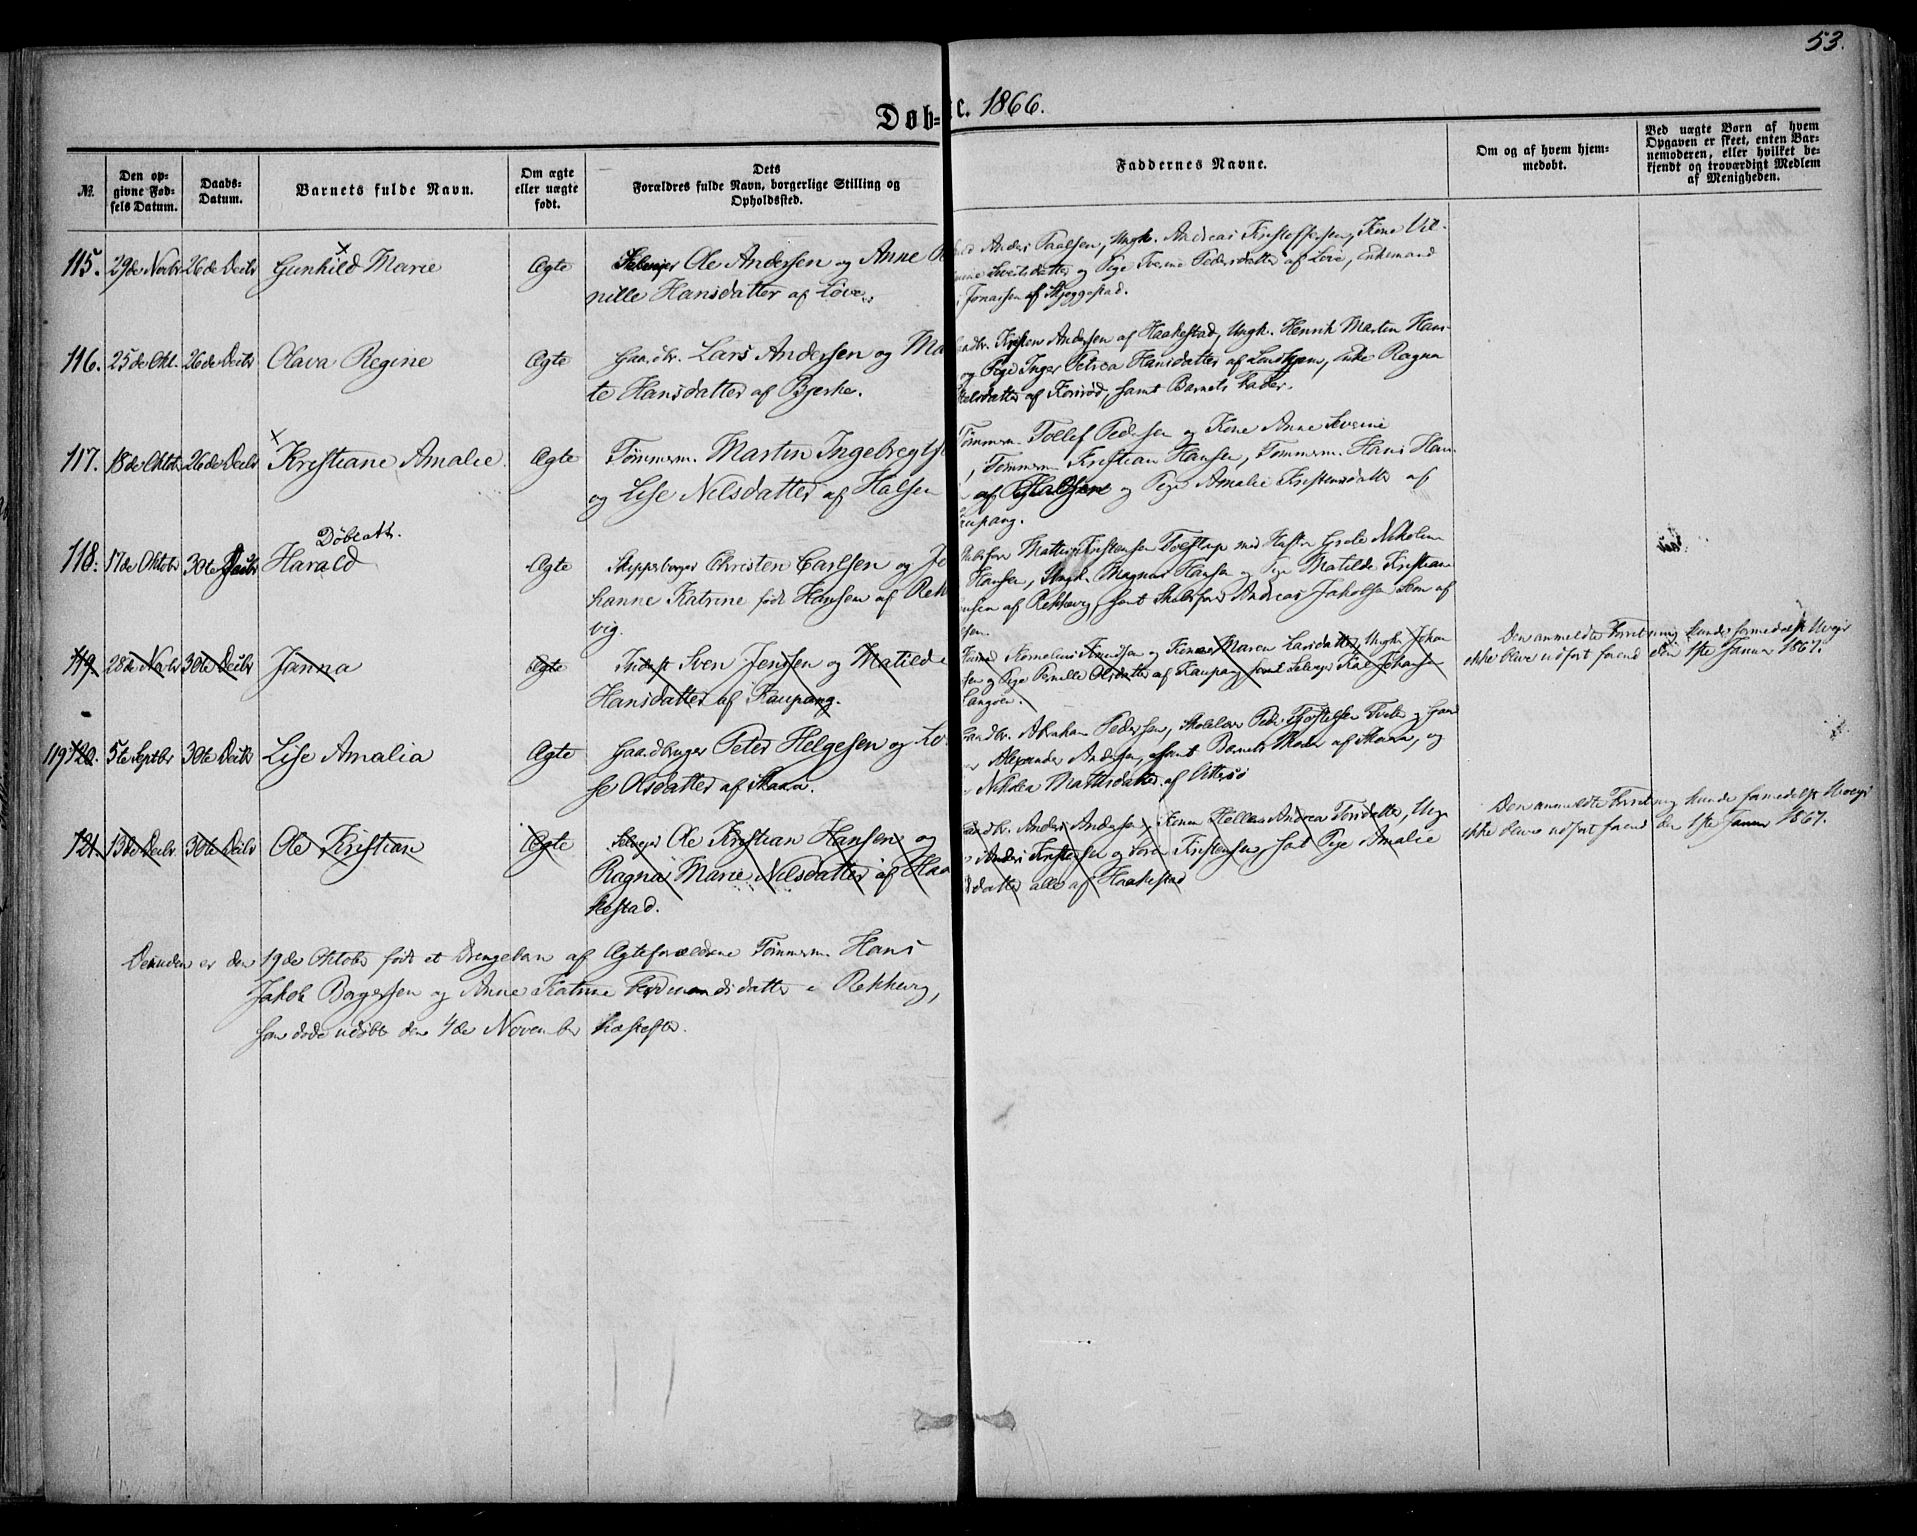 53.
Døb- e. 1866.
№.
Den op-
givne Fød-
sels Datum.
Daabs-
Datum.
Barnets fulde Navn.
Om ægte
eller uægte
født.
Dets
Forældres fulde Navn, borgerlige Stilling og
Opholdssted.
Faddernes Navne.
Om og af hvem hjem-
medøbt.
Ved uægte Børn af hvem
Opgaven er skeet, enten Bar-
nemoderen, eller hvilket be-
kjendt og troværdigt Medlem
af Menigheden.
115. 29de Novbr 26de Decbr Gunhild Marie Ægte Selveier Ole Andersen og Anne
nille Hansdatter af Løve.
Anders Paalsen, Ungk. Andreas Kristoffersen, Kone
og Pige Iverine Pedersdatter af Løve, Enkemand
Jonassen af Skjeggestad.
116. 25de Okt. 26de Decbr Olava Regine Ægte Gaardbr. Lars Andersen og Ma
te Hansdatter af Bjerke.
Kristen Andersen af Haakestad, Ungk. Henrik Martin Hans-
og Pige Inger Petrea Hansdatter af, Enke Ragna
datter af, samt Barnets Fader.
117. 18de Oktbr 26de Decbr Kristiane Amalie Ægte Tømmerm. Martin Ingebregts
og Lise Nilsdatter af Halsen
Tømmerm. Tollef Pedersen og Kone Anne Severine
, Tømmerm. Kristian Hansen, Tømmerm. Hans Han-
af og Pige Amalie Kristensdatter af
aupang.
118. 17de Oktobr 30te Decbr Døbeatt.
Harald Ægte Skipperborger Christen Carlsen og Jo
hanne Katrine født Hansen af Rekke
vig.
Mathias Kristensen Tolstap med Hustru Grete Nikoline
Hansen, Ungk. Magnus Hansen og Pige Matilde Kristiane
nsen af Rekkevig, samt Andreas Jakobsen af
sen.
119. 28de Novbr 30te Decbr Janna Ægte Inderst Sven Jensen og Matilde
Hansdatter af Kaupang.
Kornelius Knudsen og Kone Maren Larsdatter, Ungk. Johan
sen og Pige Pernille Olsdatter af Kaupang samt Selveier Karl Johansen
Langøen.
Den anmeldte Forretning kunde formedelst Uveir
ikke blive udført forend den 1ste Januar 1867.
119 120. 5te Septbr 30te Decbr Lise Amalia Ægte Gaardbruger Peter Helgesen og Lo
se Olsdatter af Skara.
Gaardbr. Abraham Pedersen, Skolelærer Peder Tveite og Gaard
Alexander Andersen, samt Barnets Moder af Skara, og
Nikolea Mathisdatter af Ottersø
121. 13de Decbr 30te Decbr Ole Kristian Ægte Selveier Ole Kristian Hansen og
Ragna Marie Nilsdatter af Haa
kestad.
Gaardbr. Anders Andersen, Andrea Torsdatter, Ung
Anders Kristensen og Søren Kristensen, samt Pige Amalie
datter alle af Haakestad
Den anmeldte Forretning kunde formedelst Uveir
ikke blive udført forend den 1ste Januar 1867.
Desuden er den 19de Oktober født et Drengebarn af Ægteforældrene Tømmerm. Hans
Jakob Borgersen og Anne Katrine Ferdinandsdatter i Rekkevig,
som døde udøbt den 4de November næstefter.